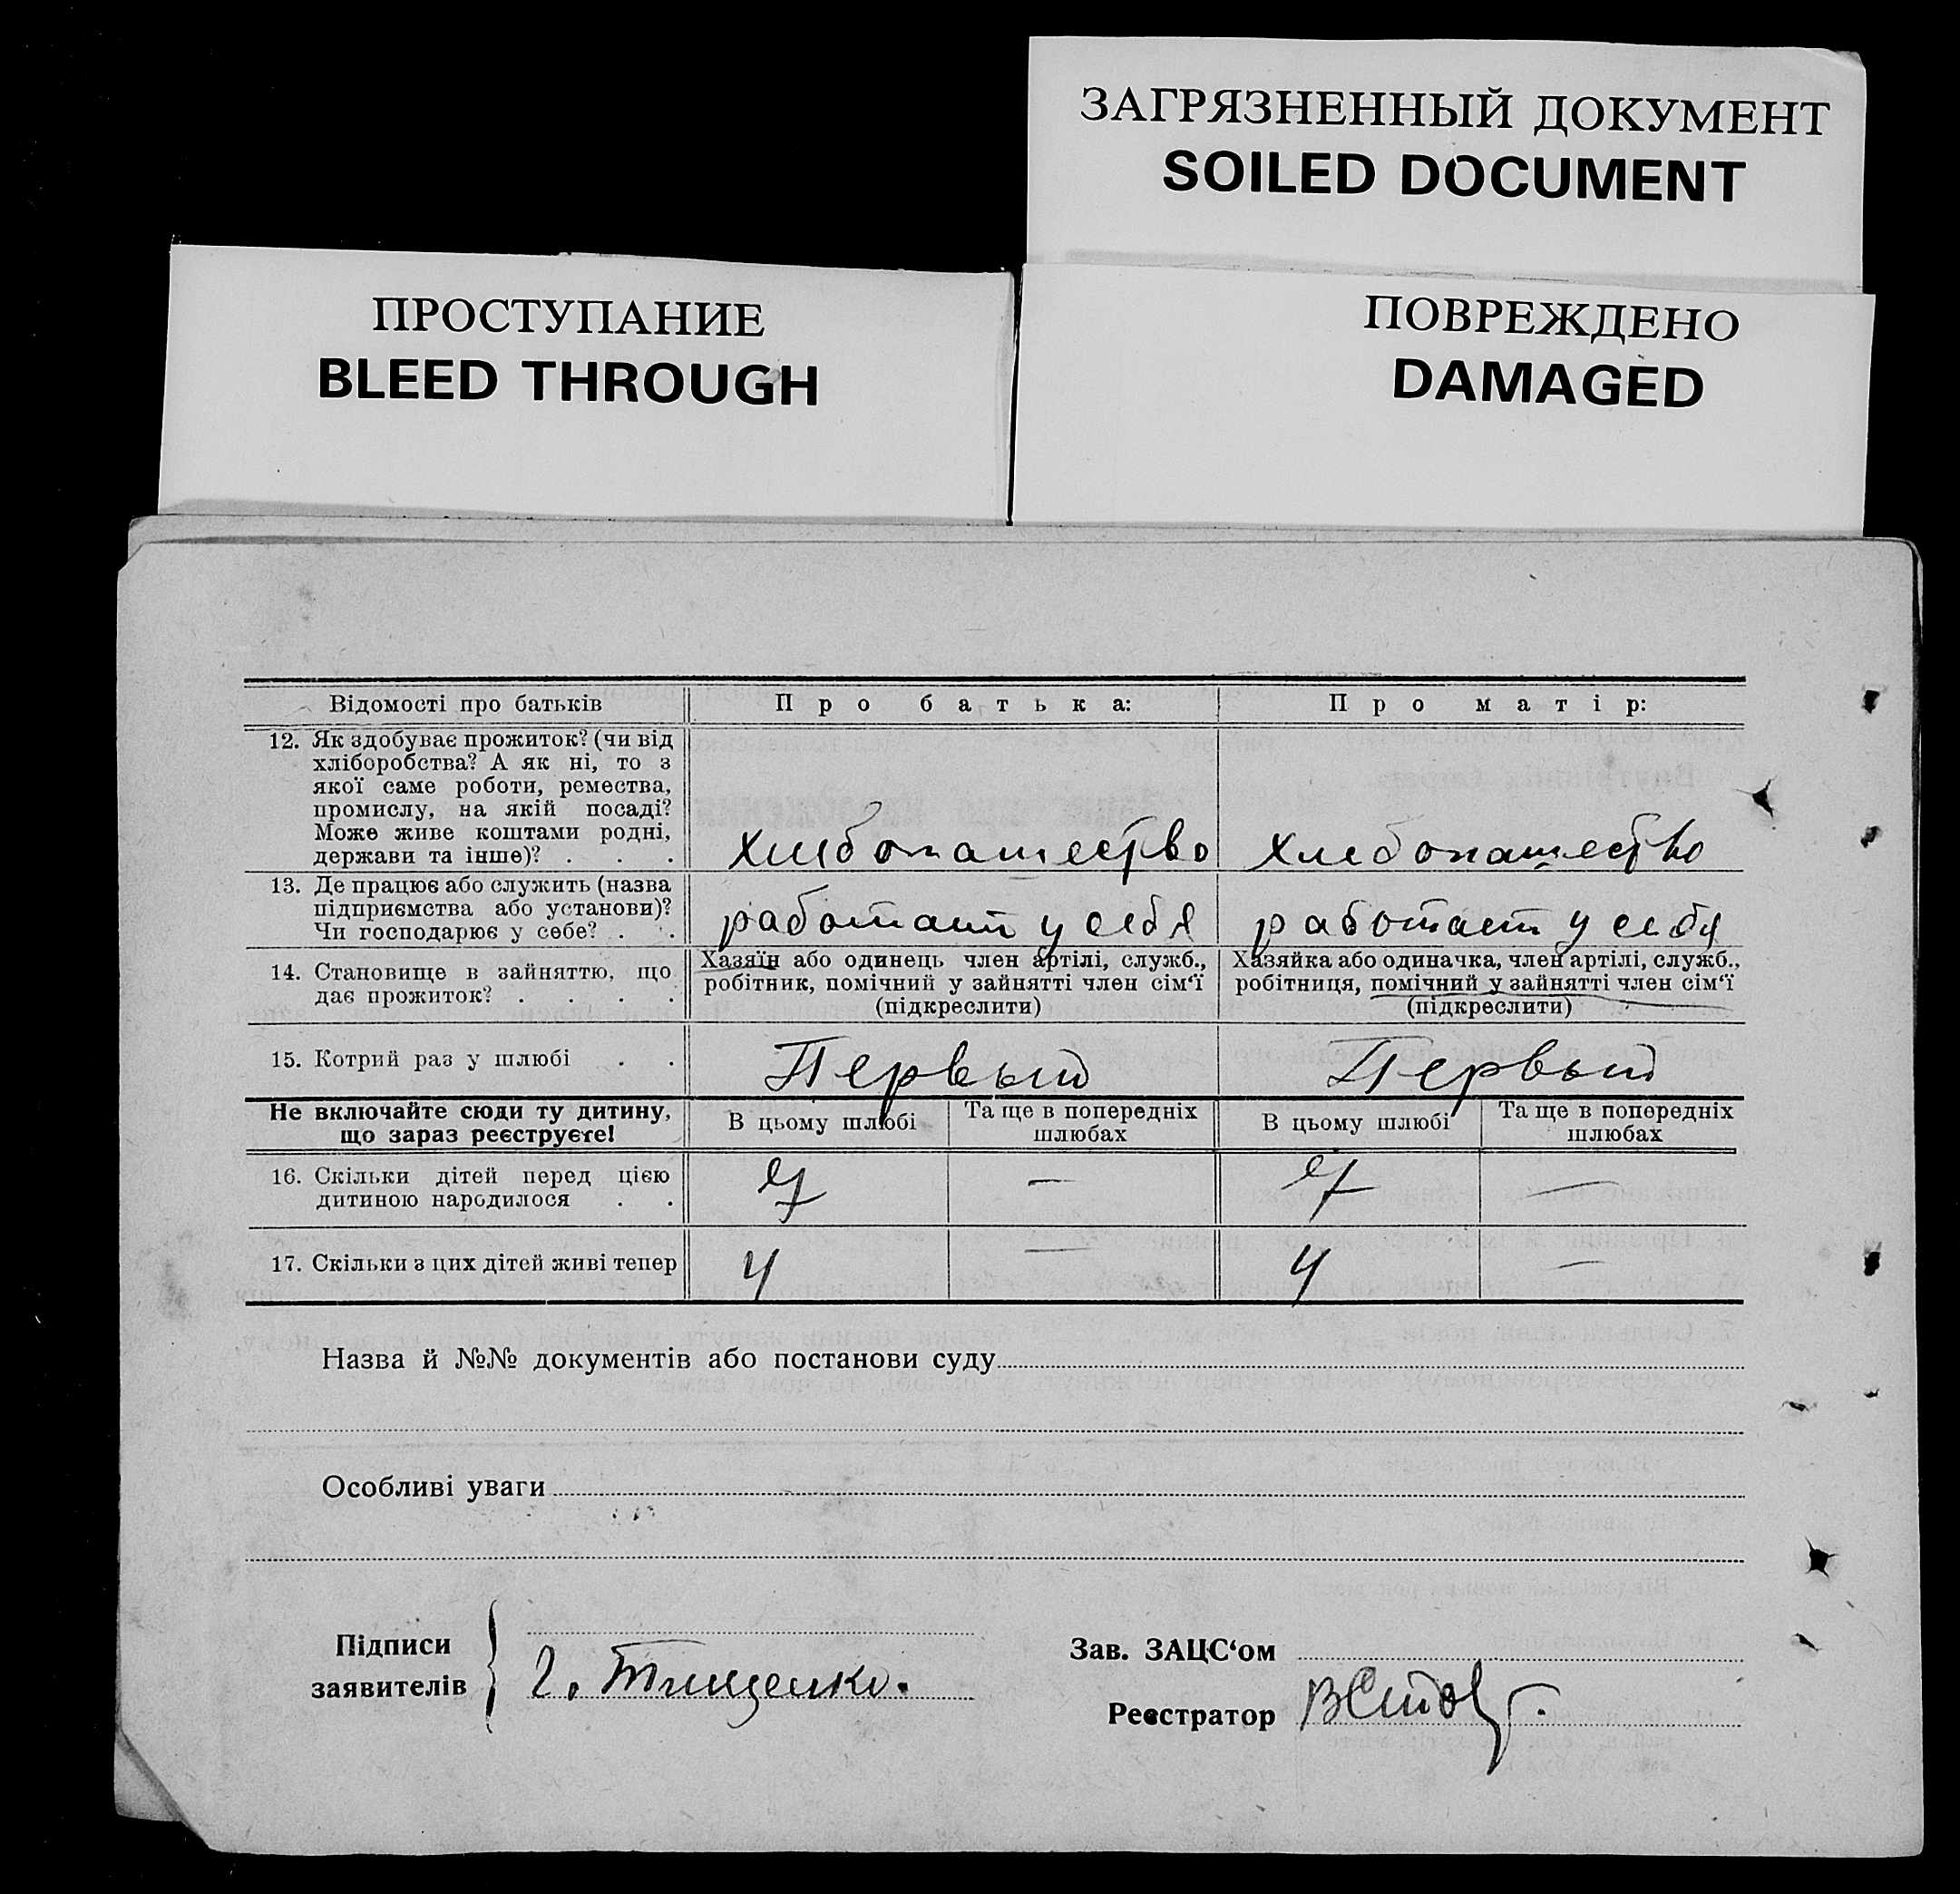 ЗАГРЯЗНЕННЫЙ ДОКУМЕНТ
SOILED DOCUMENT
ПРОСТУПАНИЕ
BLEED THROUGH
ПОВРЕЖДЕНО
DAMAGED
Відомості про батьків
Про батька:
Про матір:
12. Як здобуває прожиток? (чи від
хліборобства? А як ні, то з
якої саме роботи, ремества,
промислу, на якій посаді?
Може живе коштами родні,
держави та інше)? . . .
хлебопашество
хлебопашество
13. Де працює або служить (назва
підприємства або установи)?
Чи господарює у себе? . .
работает у себя
работает у себя
14. Становище в зайняттю, що
дає прожиток? . . . .
Хазяїн або одинець член артілі, служб.,
робітник, помічний у зайнятті член сім‘ї
(підкреслити)
Хазяйка або одиначка, член артілі, служб.,
робітниця, помічний у зайнятті член сім‘ї
(підкреслити)
15. Котрий раз у шлюбі . .
Первый
Первый
Не включайте сюди ту дитину,
що зараз реєструєте!
В цьому шлюбі
Та ще в попередніх
шлюбах
В цьому шлюбі
Та ще в попередніх
шлюбах
16. Скільки дітей перед цією
дитиною народилося . .
7
—
7
—
17. Скільки з цих дітей живі тепер
4
—
4
—
Назва й №№ документів або постанови суду
Особливі уваги
Підписи
заявителів
Г. Тищенко.
Зав. ЗАЦС‘ом
Реєстратор